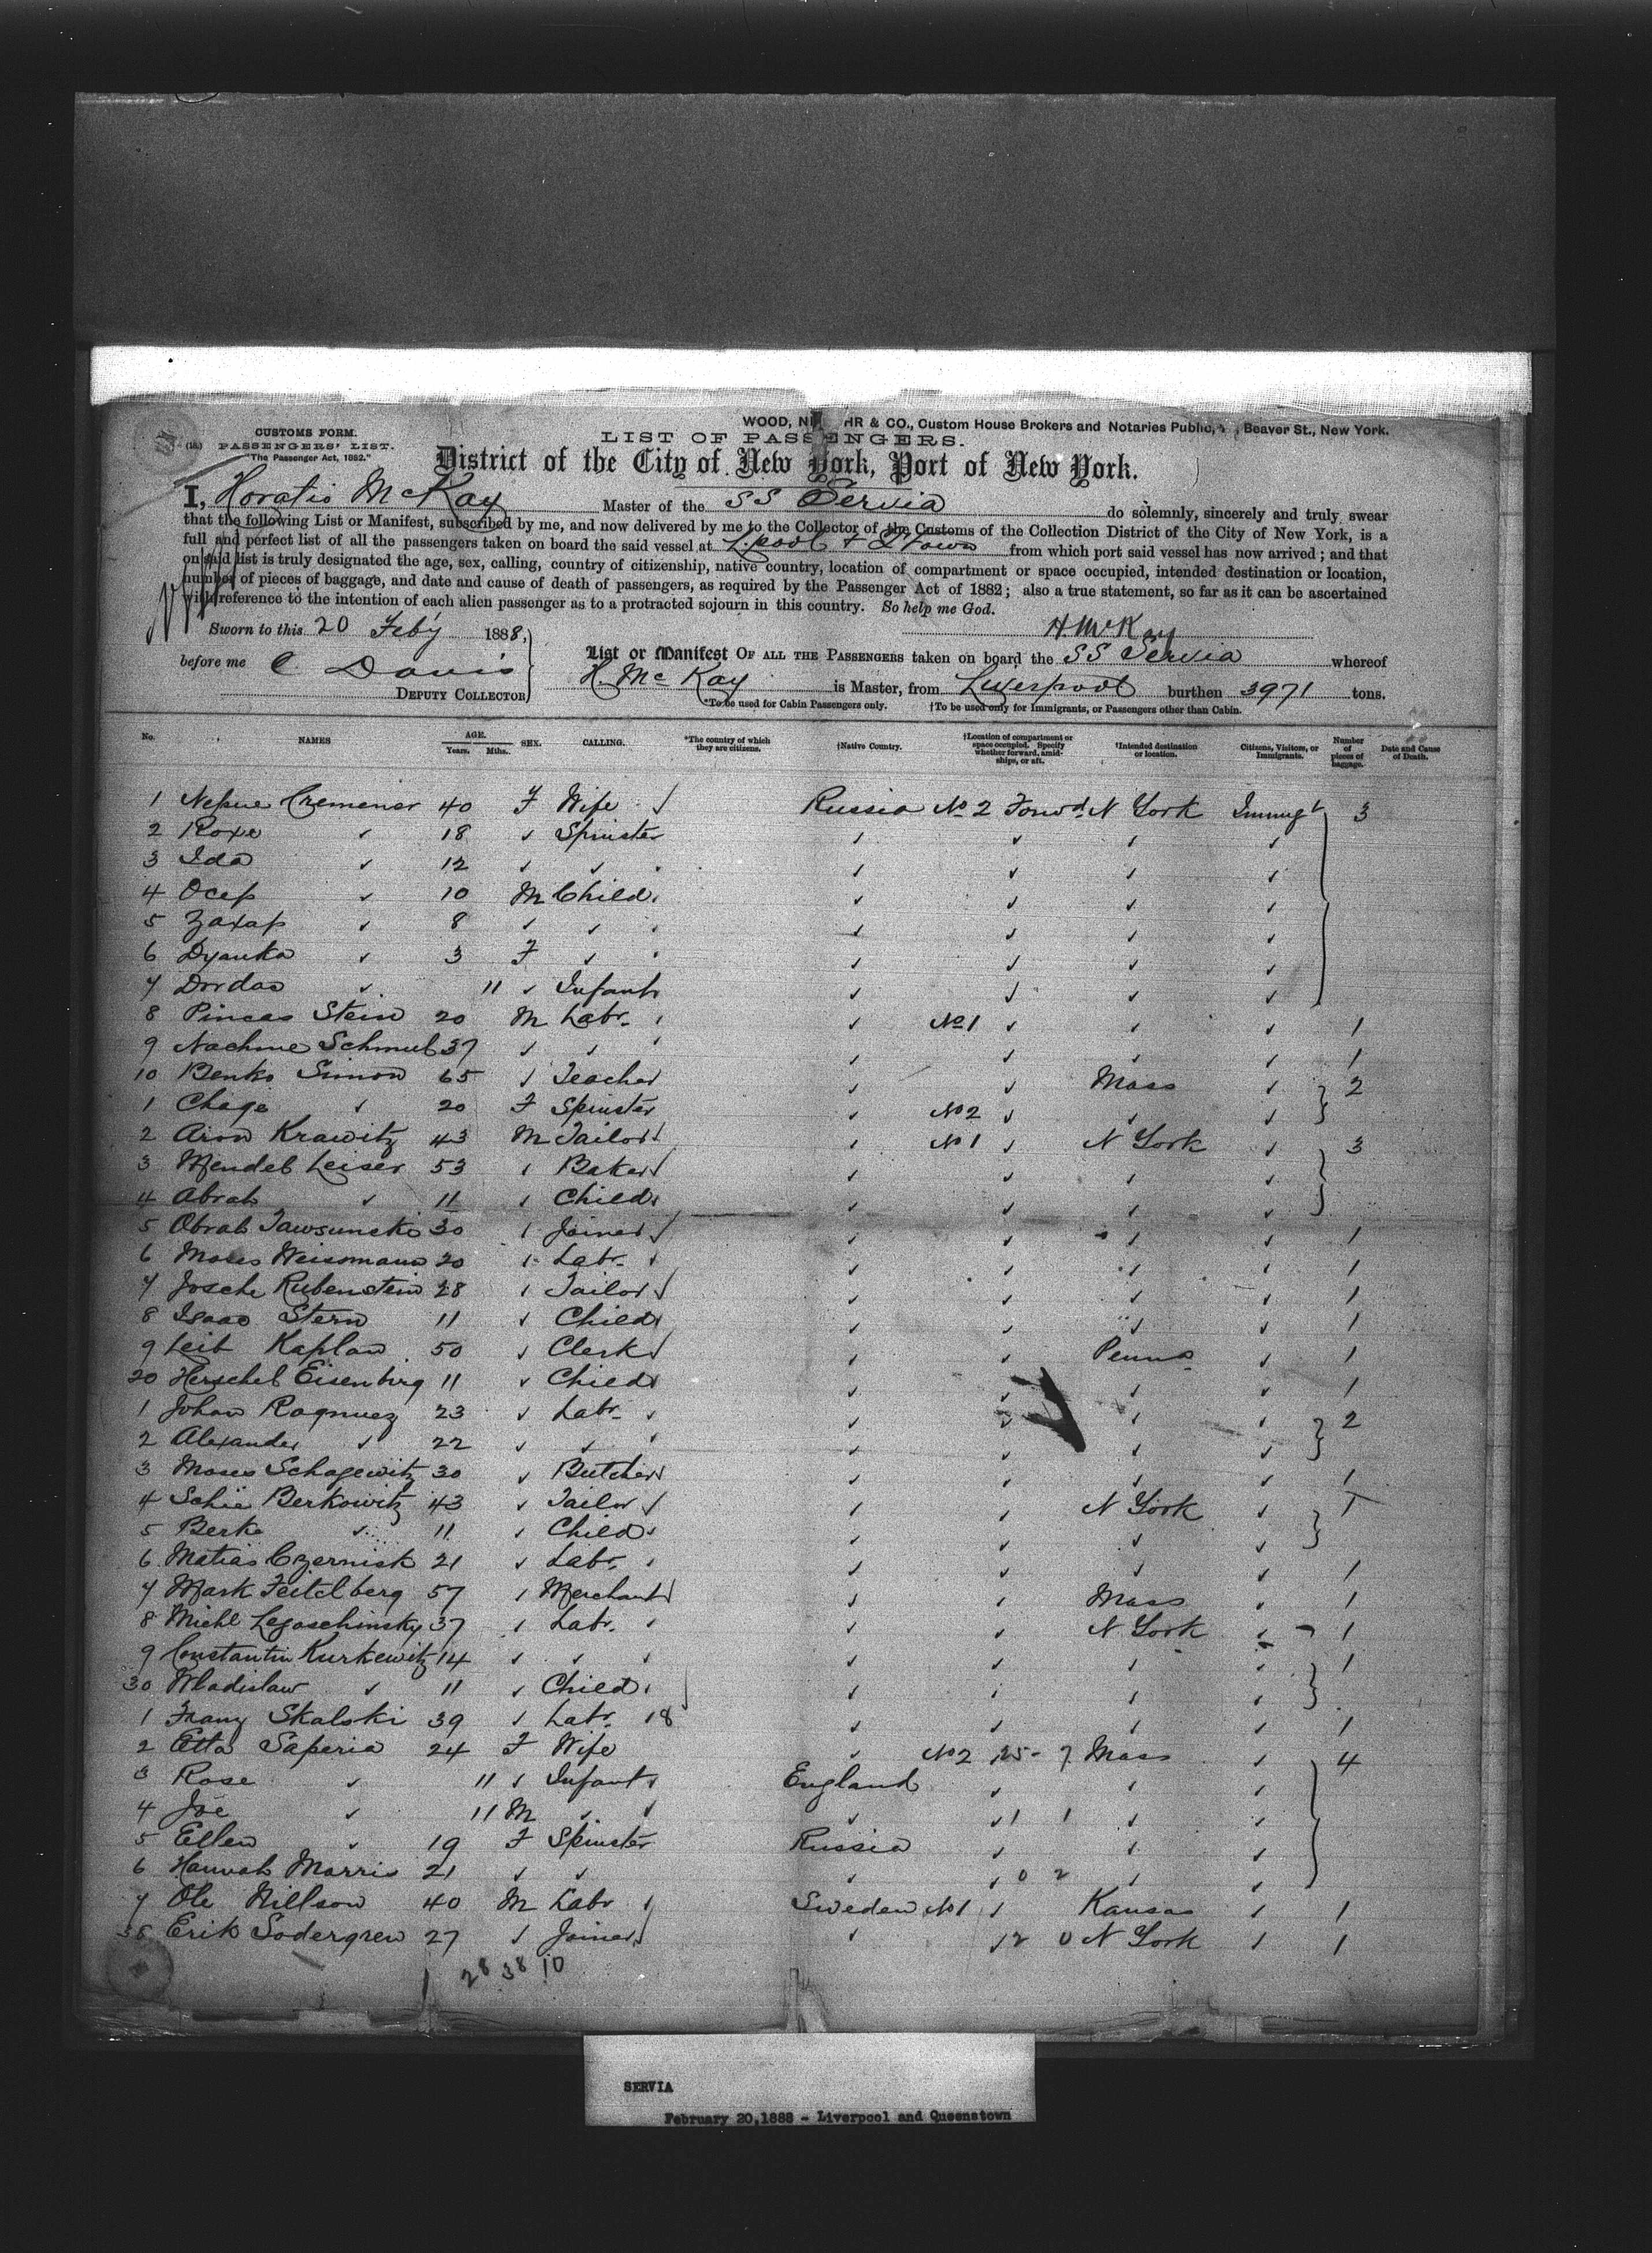 WOOD, NI HR & CO., Custom House Brokers and Notaries Public, Beaver St., New York.
CUSTOMS FORM.
LIST OF PASSENGERS.
PASSENGERS' LIST.
"The Passenger Act, 1882."
District of the City of New York, Port of New York.
I, Horatio McKay Master of the SS Servia do solemnly, sincerely and truly swear
that the following List or Manifest, subscribed by me, and now delivered by me to the Collector of the Customs of the Collection District of the City of New York, is a
full and perfect list of all the passengers taken on board the said vessel at L.pool & QTown from which port said vessel has now arrived; and that
on said list is truly designated the age, sex, calling, country of citizenship, native country, location of compartment or space occupied, intended destination or location,
number of pieces of baggage, and date and cause of death of passengers, as required by the Passenger Act of 1882; also a true statement, so far as it can be ascertained
with reference to the intention of each alien passenger as to a protracted sojourn in this country. So help me God.
Sworn to this 20 Feby 1888, H. McKay
before me C. Davis List or Manifest OF ALL THE PASSENGERS taken on board the SS Servia whereof
DEPUTY COLLECTOR H. McKay is Master, from Liverpool burthen 3971 tons.
*To be used for Cabin Passengers only. †To be used only for Immigrants, or Passengers other than Cabin.
No. NAMES AGE. Years. Mths. SEX. CALLING. *The country of which they are citizens. †Native Country. †Location of compartment or space occupied. Specify whether forward, amidships, or aft. †Intended destination or location. Citizens, Visitors, or Immigrants. Number of pieces of baggage. Date and Cause of Death.
1 Cremener 40 F Wife Russia No 2 Forwd N York Immigt 3
2 Roxe ✓ 18 ✓ Spinster ✓ ✓ ✓ ✓
3 Ida ✓ 12 ✓ ✓ ✓ ✓ ✓ ✓
4 Ocep ✓ 10 M Child ✓ ✓ ✓ ✓
5 Zaxap ✓ 8 ✓ ✓ ✓ ✓ ✓ ✓
6 Dyanka ✓ 3 F ✓ ✓ ✓ ✓ ✓
7 Dordao ✓ 11 ✓ Infant ✓ ✓ ✓ ✓
8 Pincas Stein 20 M Labr ✓ No 1 ✓ ✓ ✓ 1
9 Nachme Schmul 37 ✓ ✓ ✓ ✓ ✓ ✓ 1
10 Benko Simon 65 ✓ Teacher ✓ ✓ Mass ✓ 2
1 Chage ✓ 20 F Spinster ✓ No 2 ✓ ✓ ✓
2 Aron Krawitz 43 M Tailor ✓ No 1 ✓ N York ✓ 3
3 Mendel Leiser 53 ✓ Baker ✓ ✓ ✓ ✓
4 Abrah ✓ 11 ✓ Child ✓ ✓ ✓ ✓
5 Abrah Tawsunski 30 ✓ Joiner ✓ ✓ ✓ ✓ 1
6 Moses Weissmann 20 ✓ Labr ✓ ✓ ✓ ✓ 1
7 Josche Rubenstein 28 ✓ Tailor ✓ ✓ ✓ ✓ 1
8 Isaac Stern 11 ✓ Child ✓ ✓ ✓ ✓ 1
9 Leib Kaplan 50 ✓ Clerk ✓ ✓ Penna ✓ 1
20 Herschel Eisenberg 11 ✓ Child ✓ ✓ ✓ ✓ 1
1 Johan Ragnuez 23 ✓ Labr ✓ ✓ ✓ ✓ 2
2 Alexander ✓ 22 ✓ ✓ ✓ ✓ ✓ ✓
3 Moses Schagewitz 30 ✓ Butcher ✓ ✓ ✓ ✓ 1
4 Schie Berkowitz 43 ✓ Tailor ✓ ✓ N York ✓ 1
5 Berke ✓ 11 ✓ Child ✓ ✓ ✓ ✓
6 Matias Czernisk 21 ✓ Labr ✓ ✓ ✓ ✓ 1
7 Mark Feitelberg 57 ✓ Merchant ✓ ✓ Mass ✓ 1
8 Michl Legaschinsky 37 ✓ Labr ✓ ✓ N York ✓ 1
9 Constantin Kurkewitz 14 ✓ ✓ ✓ ✓ ✓ ✓ 1
30 Wladislaw ✓ 11 ✓ Child ✓ ✓ ✓ ✓
1 Franz Skalski 39 ✓ Labr 18 ✓ ✓ ✓ ✓ 1
2 Etta Saperia 24 F Wife ✓ No 2 25 - 7 Mass ✓ 4
3 Rose ✓ 11 ✓ Infant England ✓ ✓ ✓
4 Joe ✓ 11 M ✓ ✓ ✓ 1 1 ✓ ✓
5 Ellen ✓ 19 F Spinster Russia ✓ ✓ ✓
6 Hannah Morris 21 ✓ ✓ ✓ ✓ 0 2 ✓ ✓
7 Ole Nillson 40 M Labr Sweden No 1 ✓ Kansas ✓ 1
38 Erik Sodergren 27 ✓ Joiner ✓ ✓ 2 0 N York ✓ 1
28 38 10
SERVIA
February 20,1888 - Liverpool and Queenstown